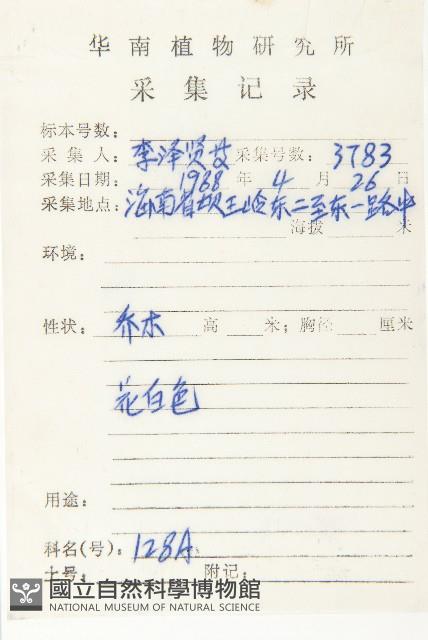 华南植物研究所
采集记录
标本号数：
采集人：李泽贤等 采集号数：3783
采集日期：1988年4月26日
采集地点：海南省坝王岭东二至东一路中
海拔 米
环境：
性状：乔木 高 米；胸径 厘米
花白色
用途：
科名(号)：128A
土号： 附记：
國立自然科學博物館
NATIONAL MUSEUM OF NATURAL SCIENCE